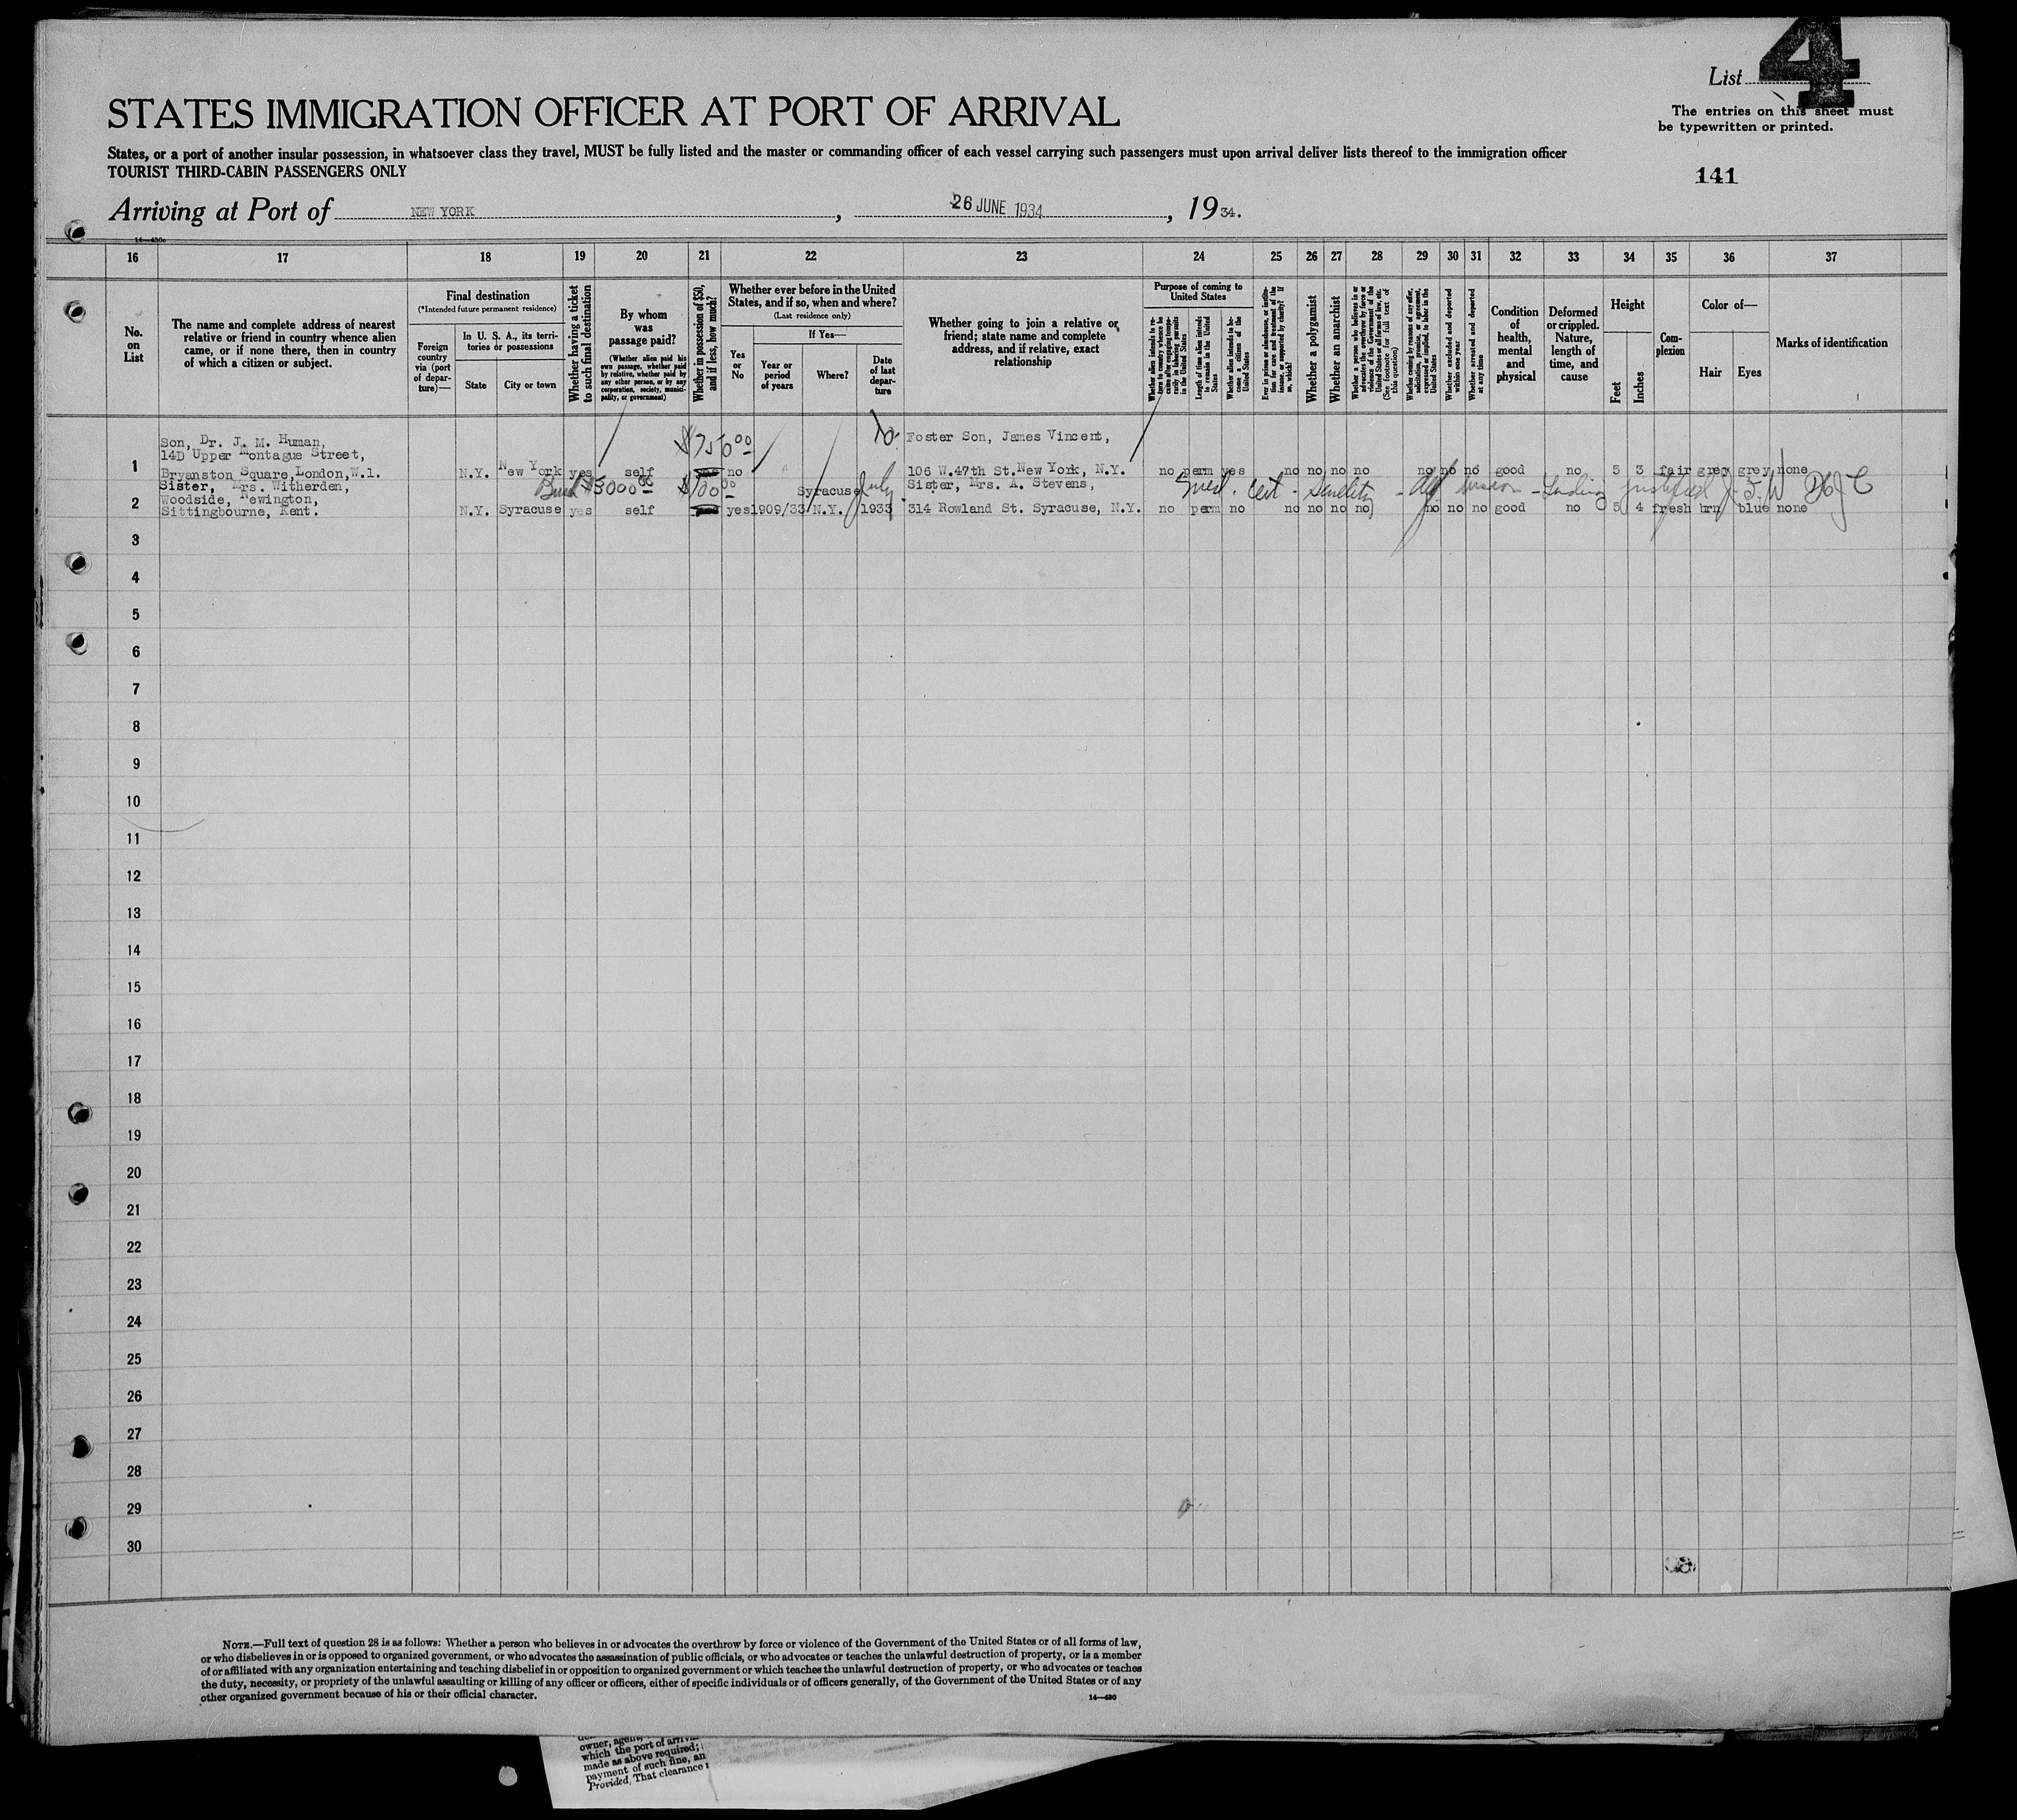 List 4
The entries on this sheet must
be typewritten or printed.
STATES IMMIGRATION OFFICER AT PORT OF ARRIVAL
States, or a port of another insular possession, in whatsoever class they travel, MUST be fully listed and the master or commanding officer of each vessel carrying such passengers must upon arrival deliver lists thereof to the immigration officer
TOURIST THIRD-CABIN PASSENGERS ONLY
141
Arriving at Port of NEW YORK, 26 JUNE 1934, 1934.
14—430c
16 17 18 19 20 21 22 23 24 25 26 27 28 29 30 31 32 33 34 35 36 37
No. on List
The name and complete address of nearest
relative or friend in country whence alien
came, or if none there, then in country
of which a citizen or subject.
Final destination
(*Intended future permanent residence)
Foreign country via (port of departure)—
In U. S. A., its territories or possessions
State
City or town
Whether having a ticket to such final destination
By whom was passage paid?
(Whether alien paid his own passage, whether paid by relative, whether paid by any other person, or by any corporation, society, municipality, or government)
Whether in possession of $50, and if less, how much?
Whether ever before in the United
States, and if so, when and where?
(Last residence only)
Yes or No
If Yes—
Year or period of years
Where?
Date of last departure
Whether going to join a relative or
friend; state name and complete
address, and if relative, exact
relationship
Purpose of coming to United States
Length of time alien intends to remain in the United States
Whether alien intends to become a citizen of the United States
Whether a polygamist
Whether an anarchist
(See footnote for full text of this question)
Whether excluded and deported within one year
Whether arrested and deported at any time
Condition of health, mental and physical
Deformed or crippled. Nature, length of time, and cause
Height
Feet
Inches
Complexion
Color of—
Hair
Eyes
Marks of identification
Son, Dr. J. M. Human,
14D Upper Montague Street,
Bryanston Square, London, W.1.
1 N.Y. New York yes self $750 00 no
Foster Son, James Vincent,
106 W.47th St. New York, N.Y. no perm yes no no no no no no no good no 5 3 fair grey grey none
Sister, Mrs. Witherden,
Woodside, Newington,
Sittingbourne, Kent.
$5000 00 $100 00
2 N.Y. Syracuse yes self yes 1909/33 Syracuse N.Y. July 1933
Sister, Mrs. A. Stevens,
314 Rowland St. Syracuse, N.Y. no perm no no no no no no no no good no 5 4 fresh brn blue none
Med. Cert - Senility - Landing justified
3
4
5
6
7
8
9
10
11
12
13
14
15
16
17
18
19
20
21
22
23
24
25
26
27
28
29
30
NOTE.—Full text of question 28 is as follows: Whether a person who believes in or advocates the overthrow by force or violence of the Government of the United States or of all forms of law,
or who disbelieves in or is opposed to organized government, or who advocates the assassination of public officials, or who advocates or teaches the unlawful destruction of property, or is a member
of or affiliated with any organization entertaining and teaching disbelief in or opposition to organized government or which teaches the unlawful destruction of property, or who advocates or teaches
the duty, necessity, or propriety of the unlawful assaulting or killing of any officer or officers, either of specific individuals or of officers generally, of the Government of the United States or of any
other organized government because of his or their official character.
14—430
owner, agent,
which the port of arriv
made as above required;
payment of such fine, an
Provided, That clearance